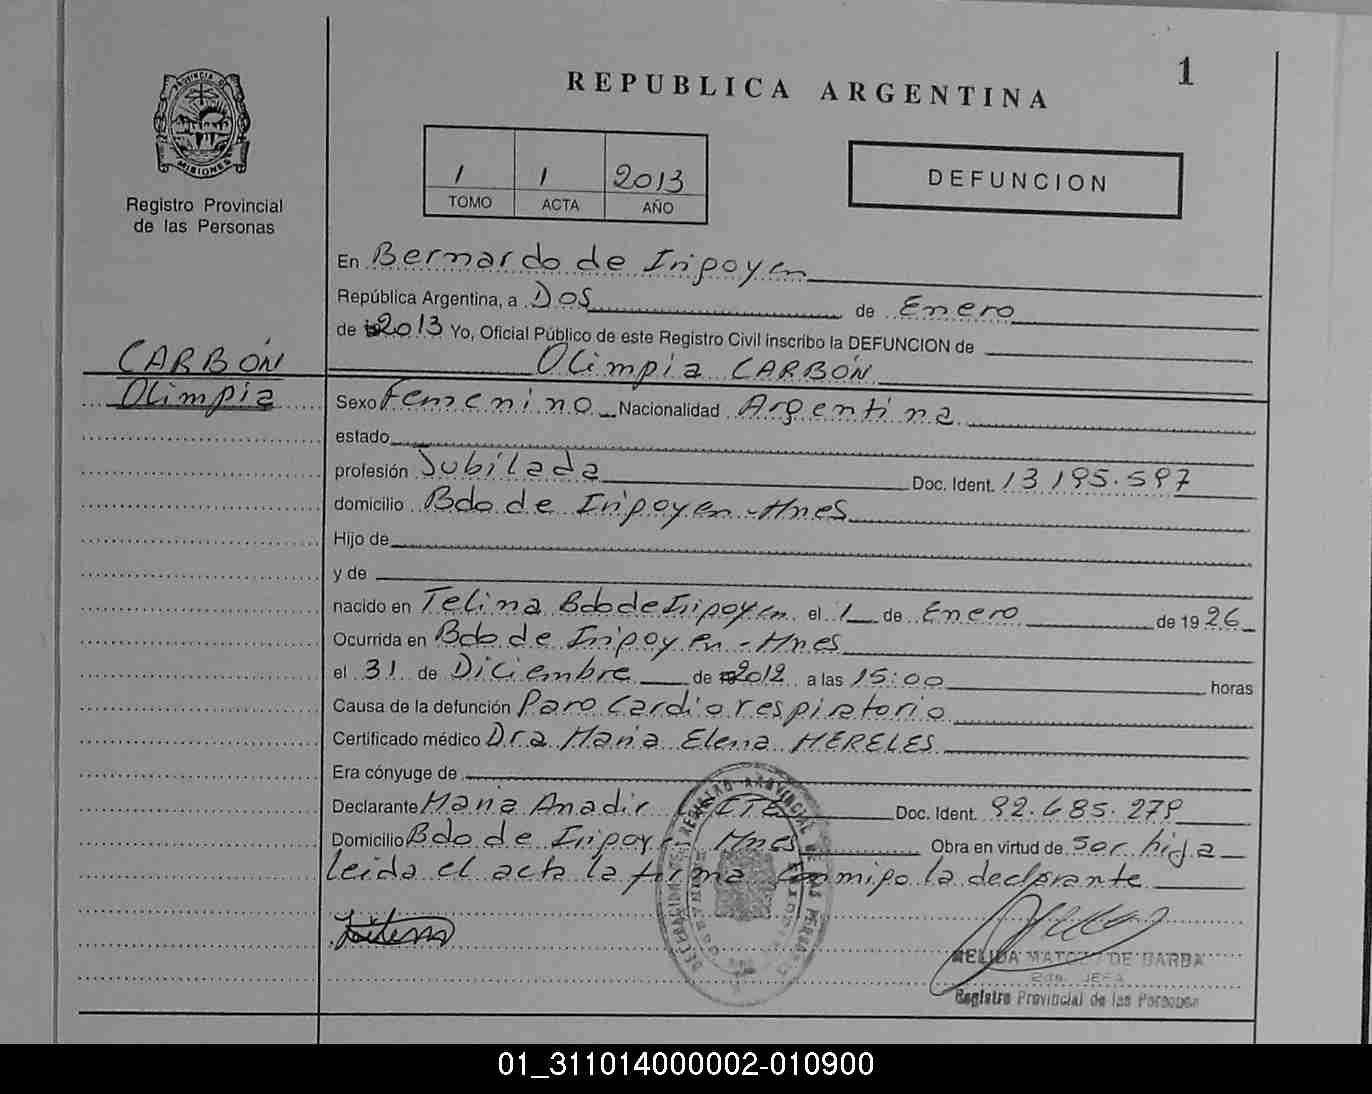 1
REPUBLICA ARGENTINA
PROVINCIA DE
MISIONES
Registro Provincial
de las Personas
1 1 2013
TOMO ACTA AÑO
DEFUNCION
En Bernardo de Iripoyen
República Argentina, a Dos de Enero
de 2013 Yo, Oficial Público de este Registro Civil inscribo la DEFUNCION de
CARBÓN
Olimpia CARBÓN
Olimpia
Sexo Femenino Nacionalidad Argentina
estado
profesión Jubilada Doc. Ident. 13195.597
domicilio Bdo de Iripoyen - Mnes
Hijo de
y de
nacido en Telina Bdo de Iripoyen el 1 de Enero de 1926
Ocurrida en Bdo de Iripoyen - Mnes
el 31 de Diciembre de 2012 a las 15:00 horas
Causa de la defunción Paro Cardiorespiratorio
Certificado médico Dra Maria Elena MERELES
Era cónyuge de
Declarante Maria Anadir Doc. Ident. 92.685.279
Domicilio Bdo de Iripoyen Mnes Obra en virtud de Ser hija
leida el acta la firma conmigo la declarante
NELIDA DE BARBA
2da. JEFA
Registro Provincial de las Personas
01_311014000002-010900